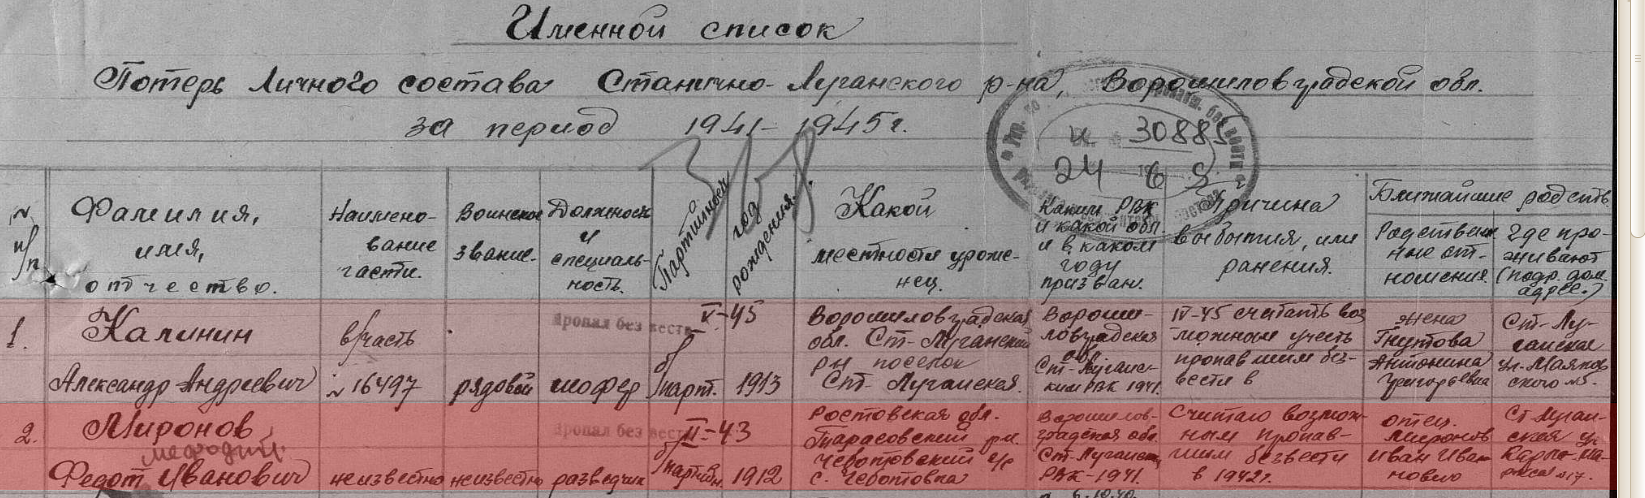 Именной список
Потерь личного состава Станично-Луганского р-на, Ворошиловградской обл.
за период 1941-1945 г.
и 30885
24 6
№ п/п
Фамилия, имя, отчество.
Наимено-
вание
части.
Воинское
звание.
Должность
и
специаль-
ность.
Партийность
год рождения
Какой
местности уроже-
нец.
Каким РВК
и какой обл
и в каком
году
призван.
Причина
выбытия, или
ранения.
Ближайшие родств.
Родствен-
ные от-
ношения.
Где про-
живают
(подр. дом.
адрес.)
1.
Калинин
Александр Андреевич
в/часть
№ 16497
рядовой
Пропал без вести
шофер
IV-45
б/парт.
1913
Ворошиловградская
обл. Ст-Луганский
рн поселок
Ст-Луганская.
Вороши-
ловградская
обл
Ст-Луганс-
ким РВК 1941.
IV-45 считать воз
можным учесть
пропавшим без-
вести в
жена
Антонина
Григорьевна
Ст-Лу-
ганская
ул. Маяков
ского
2.
Миронов
Мефодий
Федот Иванович
неизвестно
неизвестно
Пропал без вести
разведчик
II-43
б/партийн.
1912
Ростовская обл.
Тарасовский рн.
Чеботовский с/с
с. Чеботовка
Ворошилов-
градская обл.
Ст-Луганск
РВК-1941.
Считаю возмож-
ным пропав-
шим безвести
в 1942г.
отец
Миронов
Иван Иван
ович
Ст Луган-
ская ул.
Карла-Ма-
ркса